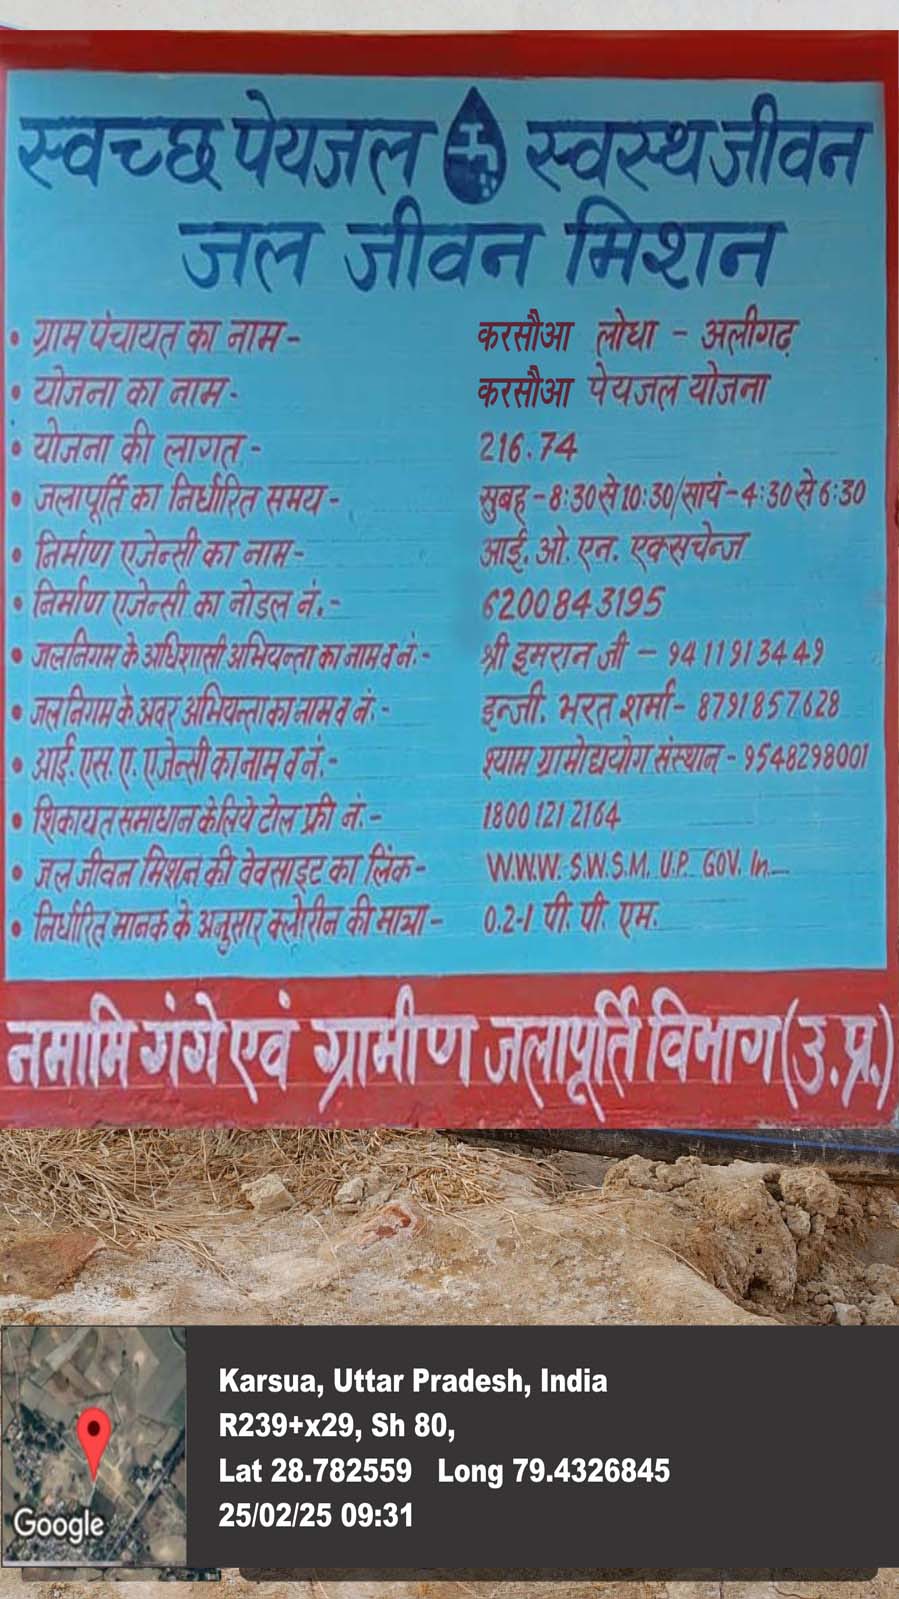 स्वच्छ पेयजल स्वस्थ जीवन
जल जीवन मिशन
• ग्राम पंचायत का नाम - करसौआ लोधा - अलीगढ़
• योजना का नाम - करसौआ पेयजल योजना
• योजना की लागत - 216.74
• जलापूर्ति का निर्धारित समय - सुबह - 8:30 से 10:30/सायं - 4:30 से 6:30
• निर्माण एजेन्सी का नाम - आई. ओ. एन. एक्सचेन्ज
• निर्माण एजेन्सी का नोडल नं. - 6200843195
• जलनिगम के अधिशासी अभियन्ता का नाम व नं. - श्री इमरान जी - 9411913449
• जलनिगम के अवर अभियन्ता का नाम व नं. - इन्जी. भरत शर्मा - 8791857628
• आई. एस. ए. एजेन्सी का नाम व नं. - श्याम ग्रामोद्ययोग संस्थान - 9548298001
• शिकायत समाधान के लिये टोल फ्री नं. - 18001212164
• जल जीवन मिशन की वेवसाइट का लिंक - W.W.W. S.W.S.M. U.P. GOV. In.
• निर्धारित मानक के अनुसार क्लोरीन की मात्रा - 0.2-1 पी. पी. एम.
नमामि गंगे एवं ग्रामीण जलापूर्ति विभाग (उ.प्र.)
Karsua, Uttar Pradesh, India
R239+x29, Sh 80,
Lat 28.782559 Long 79.4326845
25/02/25 09:31
Google